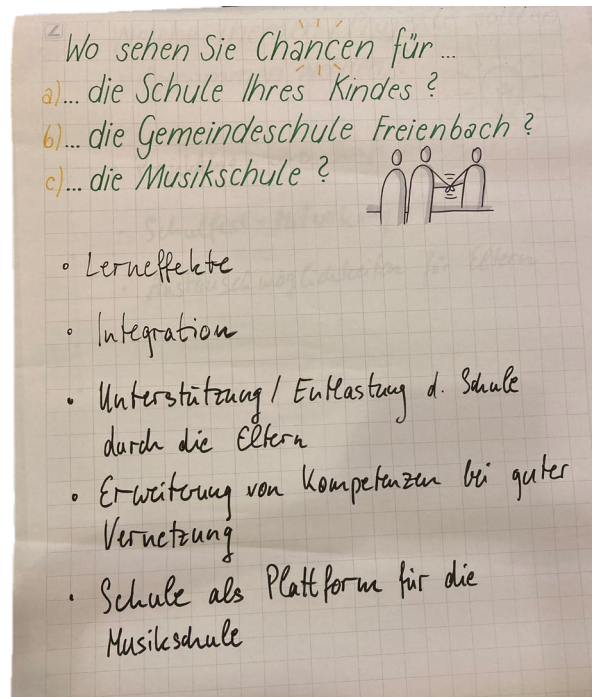 Wo sehen Sie Chancen für ...
a)... die Schule Ihres Kindes ?
b)... die Gemeindeschule Freienbach ?
c)... die Musikschule ?
• Lerneffekte
• Integration
• Unterstützung / Entlastung d. Schule
durch die Eltern
• Erweiterung von Kompetenzen bei guter
Vernetzung
• Schule als Plattform für die
Musikschule